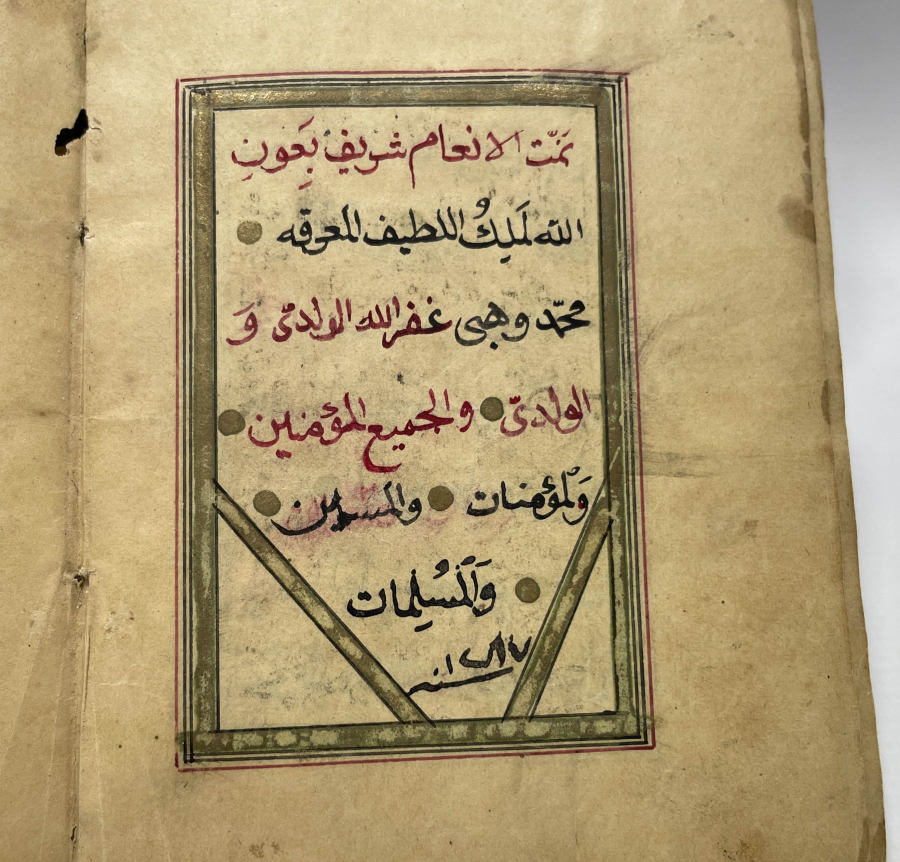 تمّت الانعام شريف بِعَونِ
الله لَمَلِكُ اللطيف المعرقه
محمّد وهبى غفر الله الولدىّ وَ
الولدىّ والجميع المؤمنين
وَلمؤمنات والمسلمين
وَالْمسُلِمات
سنه